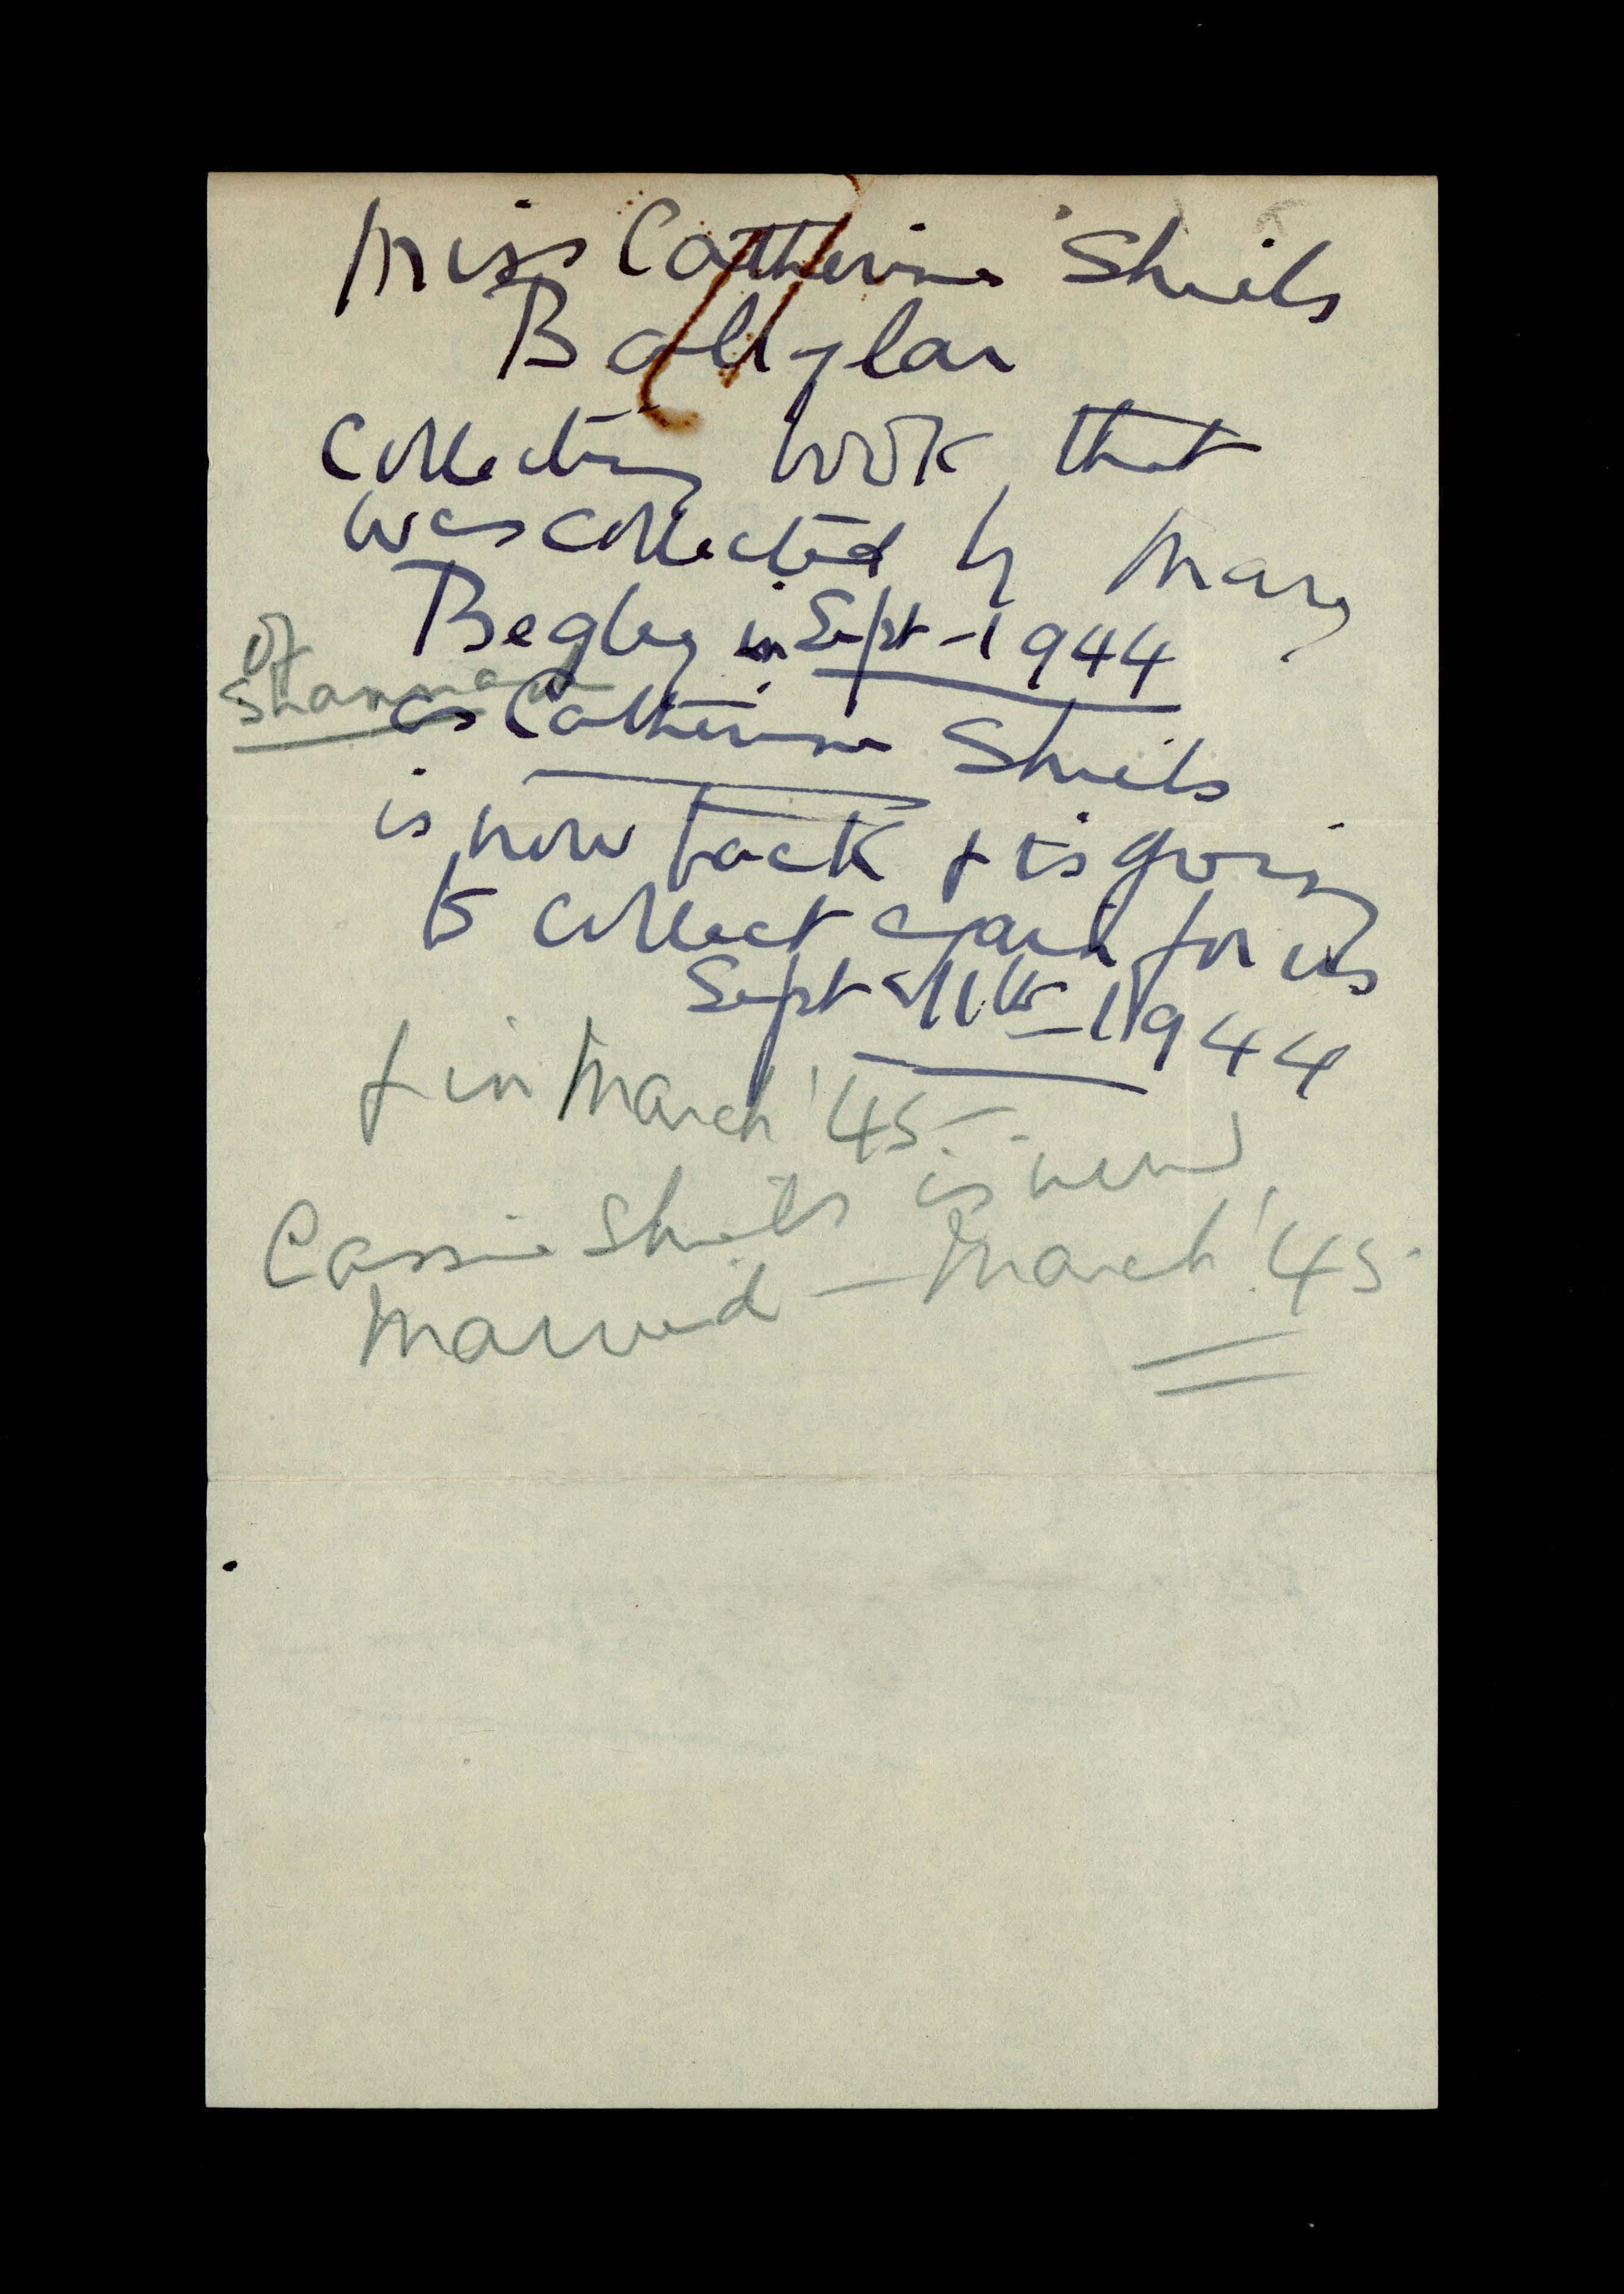 Miss Catherine Shiels
Ballylar
Collecting book that
was collected by Mary
Begley in Sept - 1944
of
Shannagh
as Catherine Shiels
is now back & is going
to collect again for us
Sept 11th - 1944
& in March '45 -
Cassie Shiels is now
Married - March '45